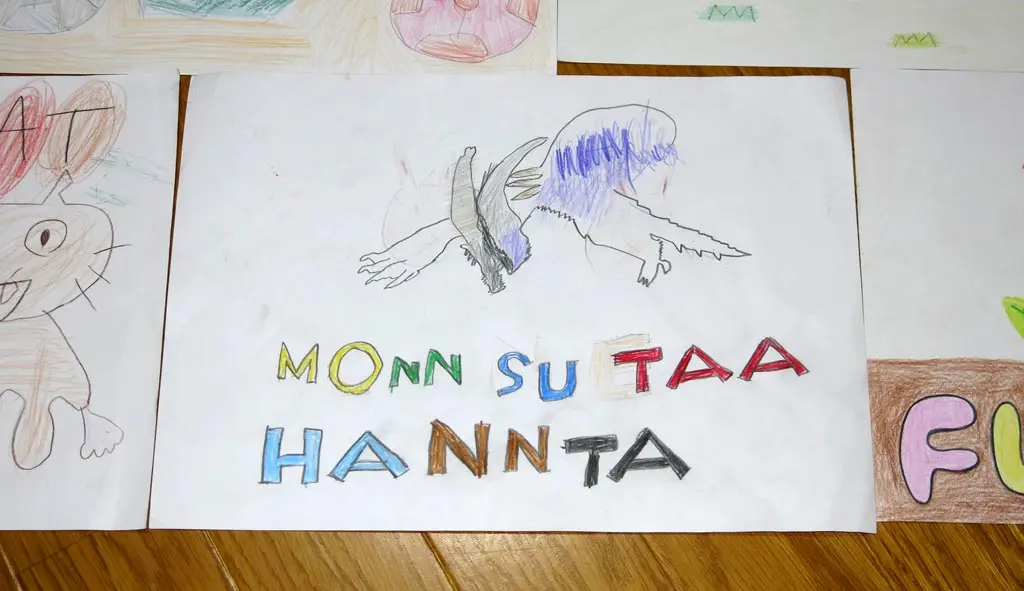 AT
MONN SU TAA
HANNTA
FU